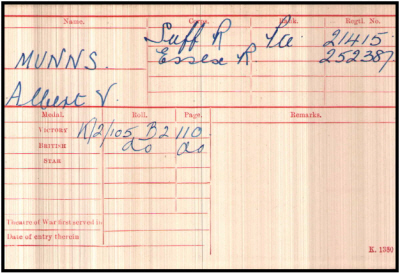 Name. Corps. Rank. Regtl. No.
MUNNS. Suff R Pte 21415
Essex R. 252387
Albert V.
Medal. Roll. Page. Remarks.
VICTORY K/2/105 B2 110
BRITISH do do
STAR
Theatre of War first served in
Date of entry therein
K. 1380